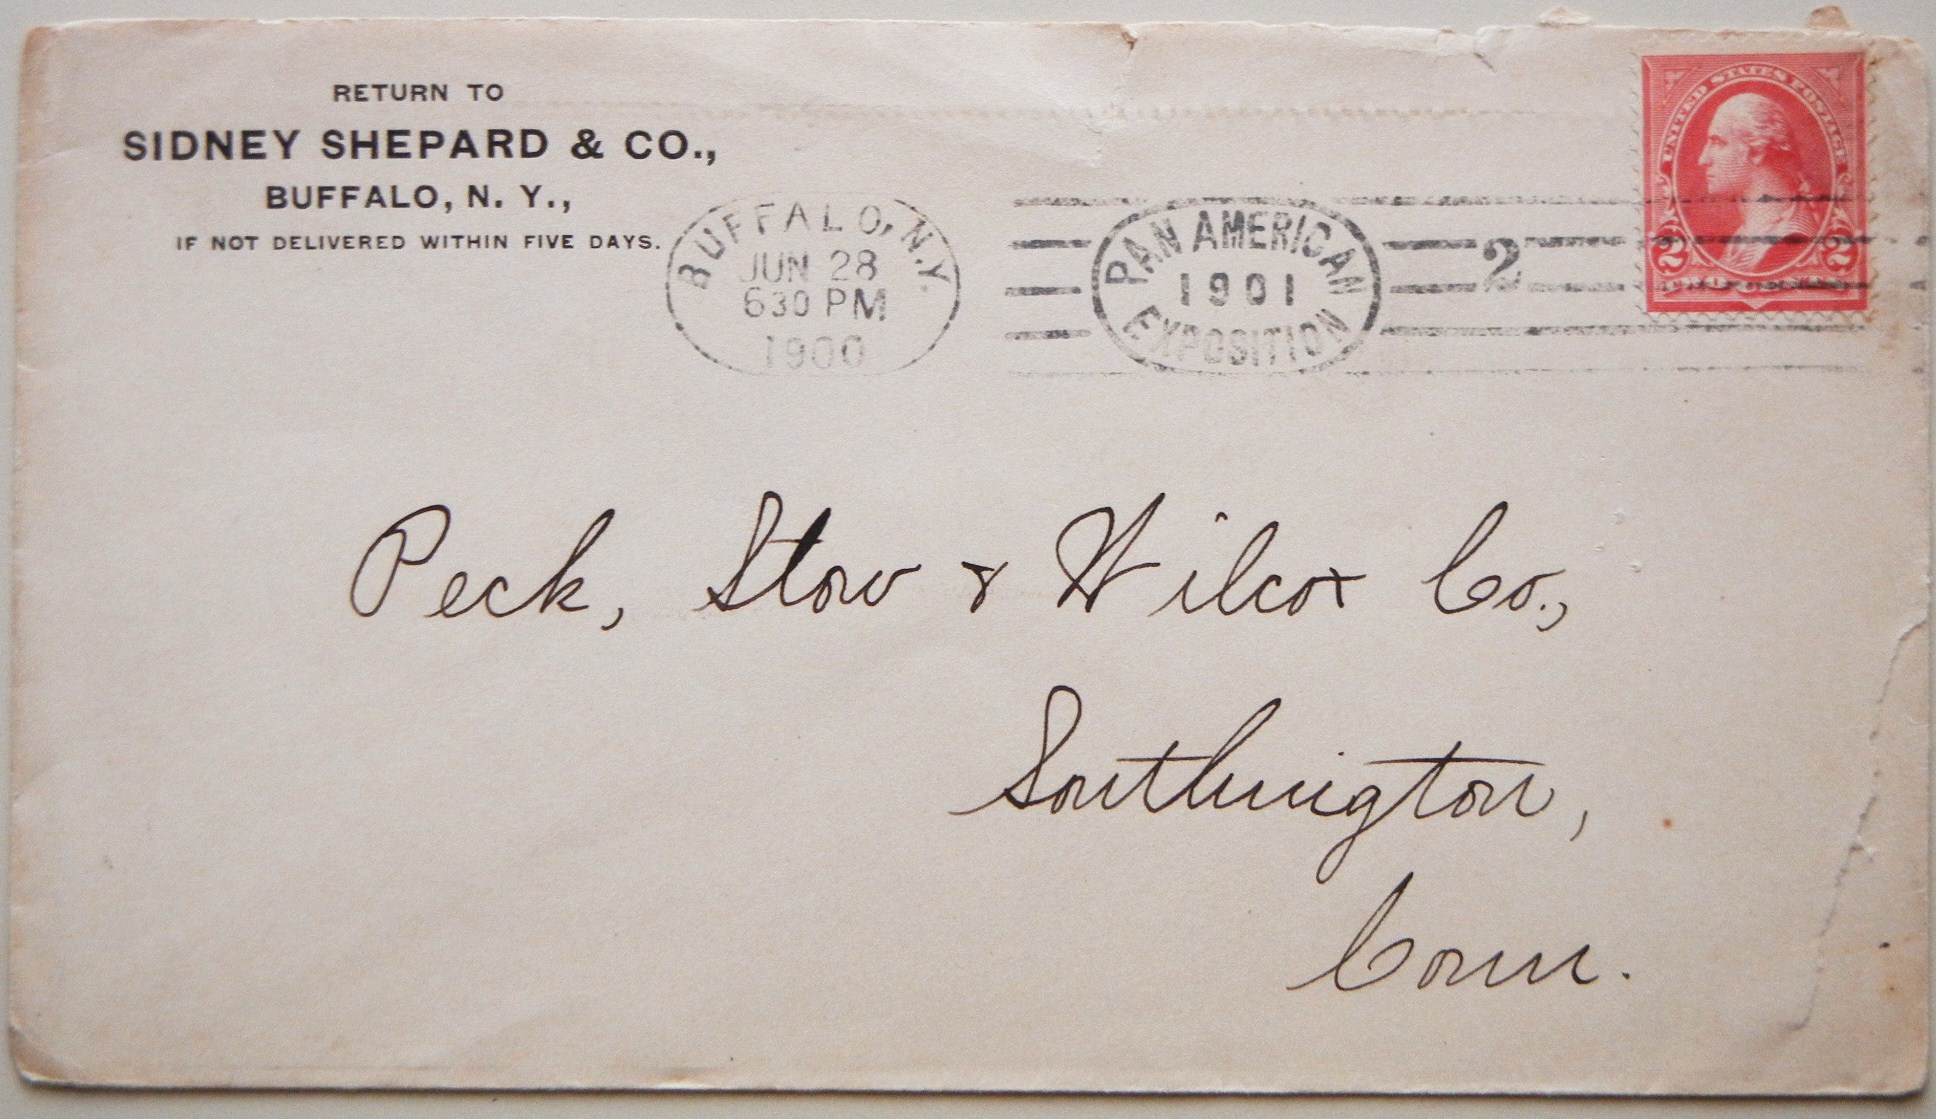 RETURN TO
SIDNEY SHEPARD & CO.,
BUFFALO, N. Y.,
IF NOT DELIVERED WITHIN FIVE DAYS.
BUFFALO, N.Y.
JUN 28
630 PM
1900
PAN AMERICAN
1901
EXPOSITION
2
UNITED STATES POSTAGE
2 2
TWO CENTS
Peck, Stow & Wilcox Co.,
Southington,
Conn.